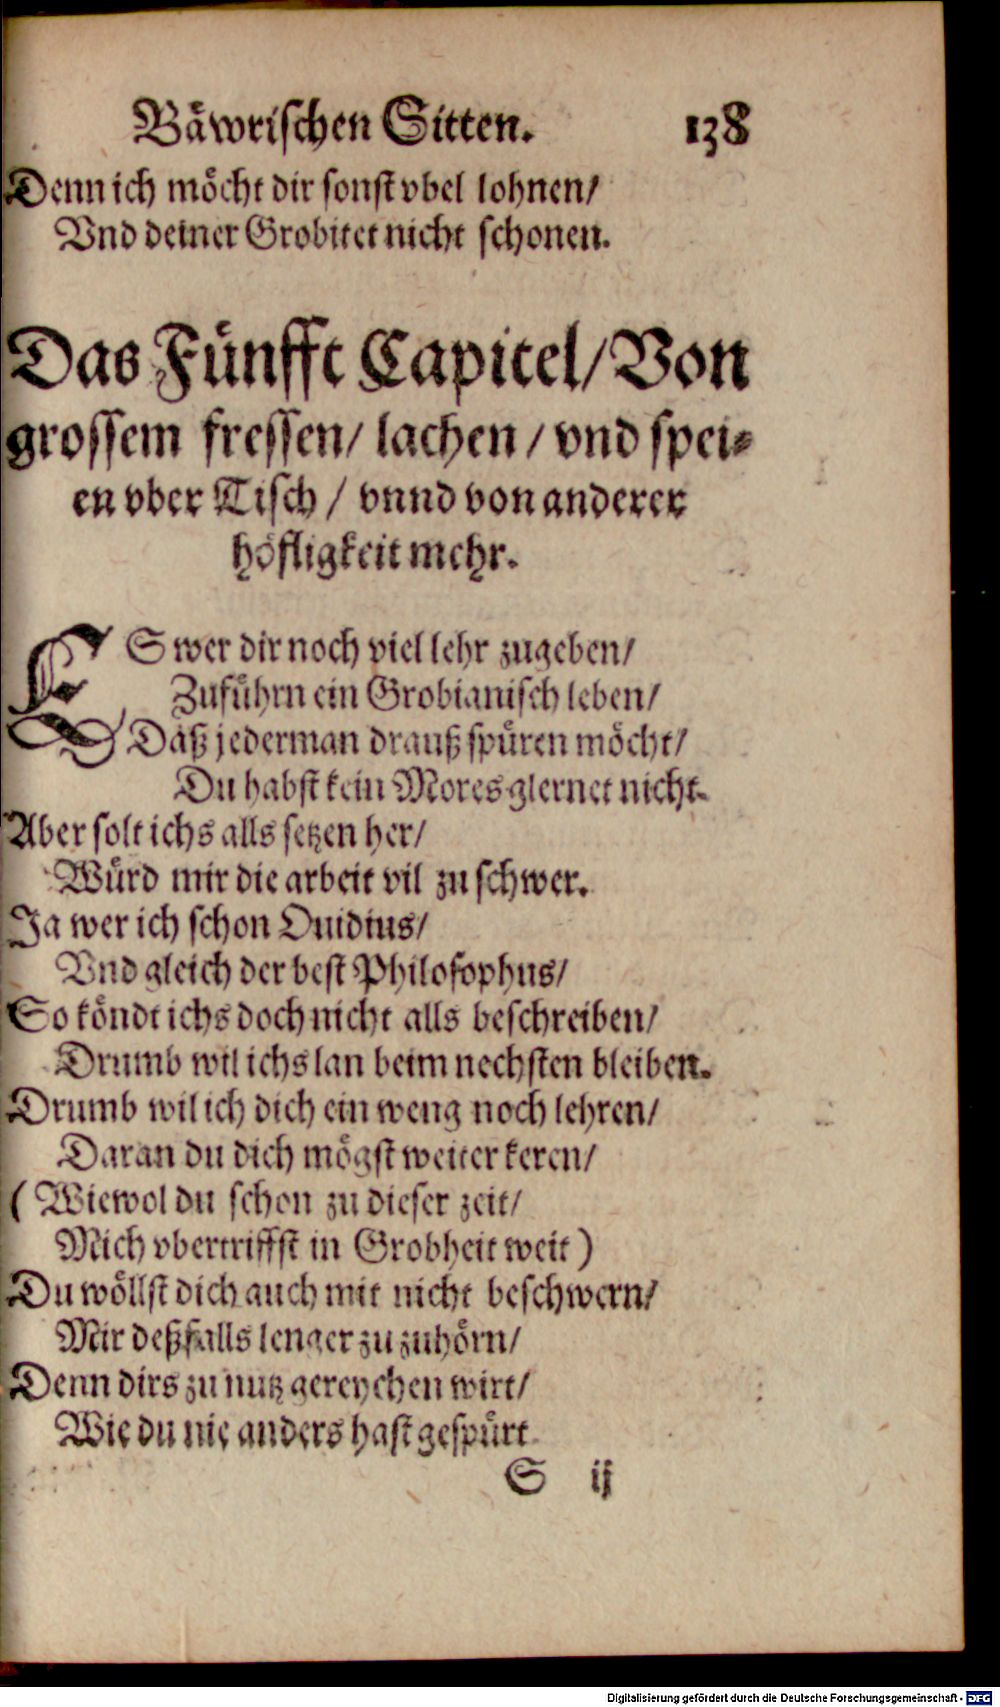 Bäwrischen Sitten. 138
Denn ich möcht dir sonst vbel lohnen/
Vnd deiner Grobitet nicht schonen.
Das Fünfft Capitel/ Von
grossem fressen/ lachen / vnd spei⸗
en vber Tisch / vnnd von anderer
höfligkeit mehr.
ES wer dir noch viel lehr zugeben/
Zuführn ein Grobianisch leben/
Daß jederman drauß spüren möcht/
Du habst kein Mores glernet nicht.
Aber solt ichs alls setzen her/
Würd mir die arbeit vil zu schwer.
Ja wer ich schon Ouidius/
Vnd gleich der best Philosophus/
So köndt ichs doch nicht alls beschreiben/
Drumb wil ichs lan beim nechsten bleiben.
Drumb wil ich dich ein weng noch lehren/
Daran du dich mögst weiter keren/
(Wiewol du schon zu dieser zeit/
Mich vbertriffst in Grobheit weit)
Du wöllst dich auch mit nicht beschwern/
Mir deßfalls lenger zu zuhörn/
Denn dirs zu nutz gereychen wirt/
Wie du nie anders hast gespürt.
S ij
Digitalisierung gefördert durch die Deutsche Forschungsgemeinschaft - DFG